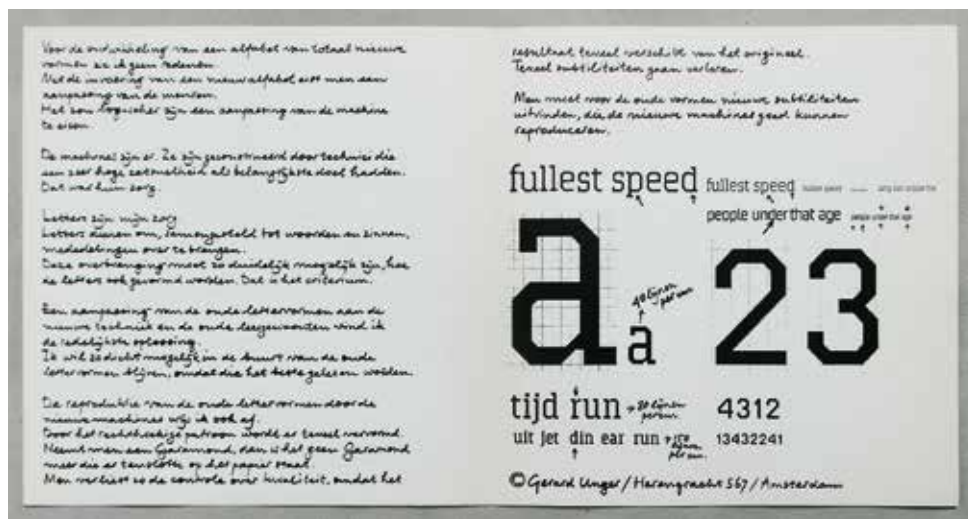 Voor de ontwikkeling van een alfabet van totaal nieuwe
vormen zie ik geen redenen.
Met de invoering van een nieuw alfabet eist men een
aanpassing van de mensen.
Het zou logischer zijn een aanpassing van de machine
te eisen.
De machines zijn er. Ze zijn geconstrueerd door technici die
een zeer hoge zetsnelheid als belangrijkste doel hadden.
Dat was hun zorg.
Letters zijn mijn zorg
Letters dienen om, samengesteld tot woorden en zinnen,
mededelingen over te brengen.
Deze overbrenging moet zo duidelijk mogelijk zijn, hoe
de letters ook gevormd worden. Dat is het criterium.
Een aanpassing van de oude lettervormen aan de
nieuwe techniek en de oude leesgewoonten vind ik
de redelijkste oplossing.
Ik wil zo dicht mogelijk in de buurt van de oude
lettervormen blijven, omdat die het beste gelezen worden.
De reproduktie van de oude lettervormen door de
nieuwe machines wijs ik ook af.
Door het rechthoekige patroon wordt er teveel vervormd.
Neemt men een Garamond, dan is het geen Garamond
meer die er tenslotte op het papier staat.
Men verliest zo de controle over kwaliteit, omdat het
resultaat teveel verschilt van het origineel.
Teveel subtiliteiten gaan verloren.
Men moet voor de oude vormen nieuwe subtiliteiten
uitvinden, die de nieuwe machines goed kunnen
reproduceren.
fullest speed fullest speed fullest speed
people under that age people under that age
a a 40 lijnen per cm 23
tijd run 80 lijnen per cm 4312
uit jet din ear run 150 lijnen per cm 13432241
© Gerard Unger / Herengracht 567 / Amsterdam